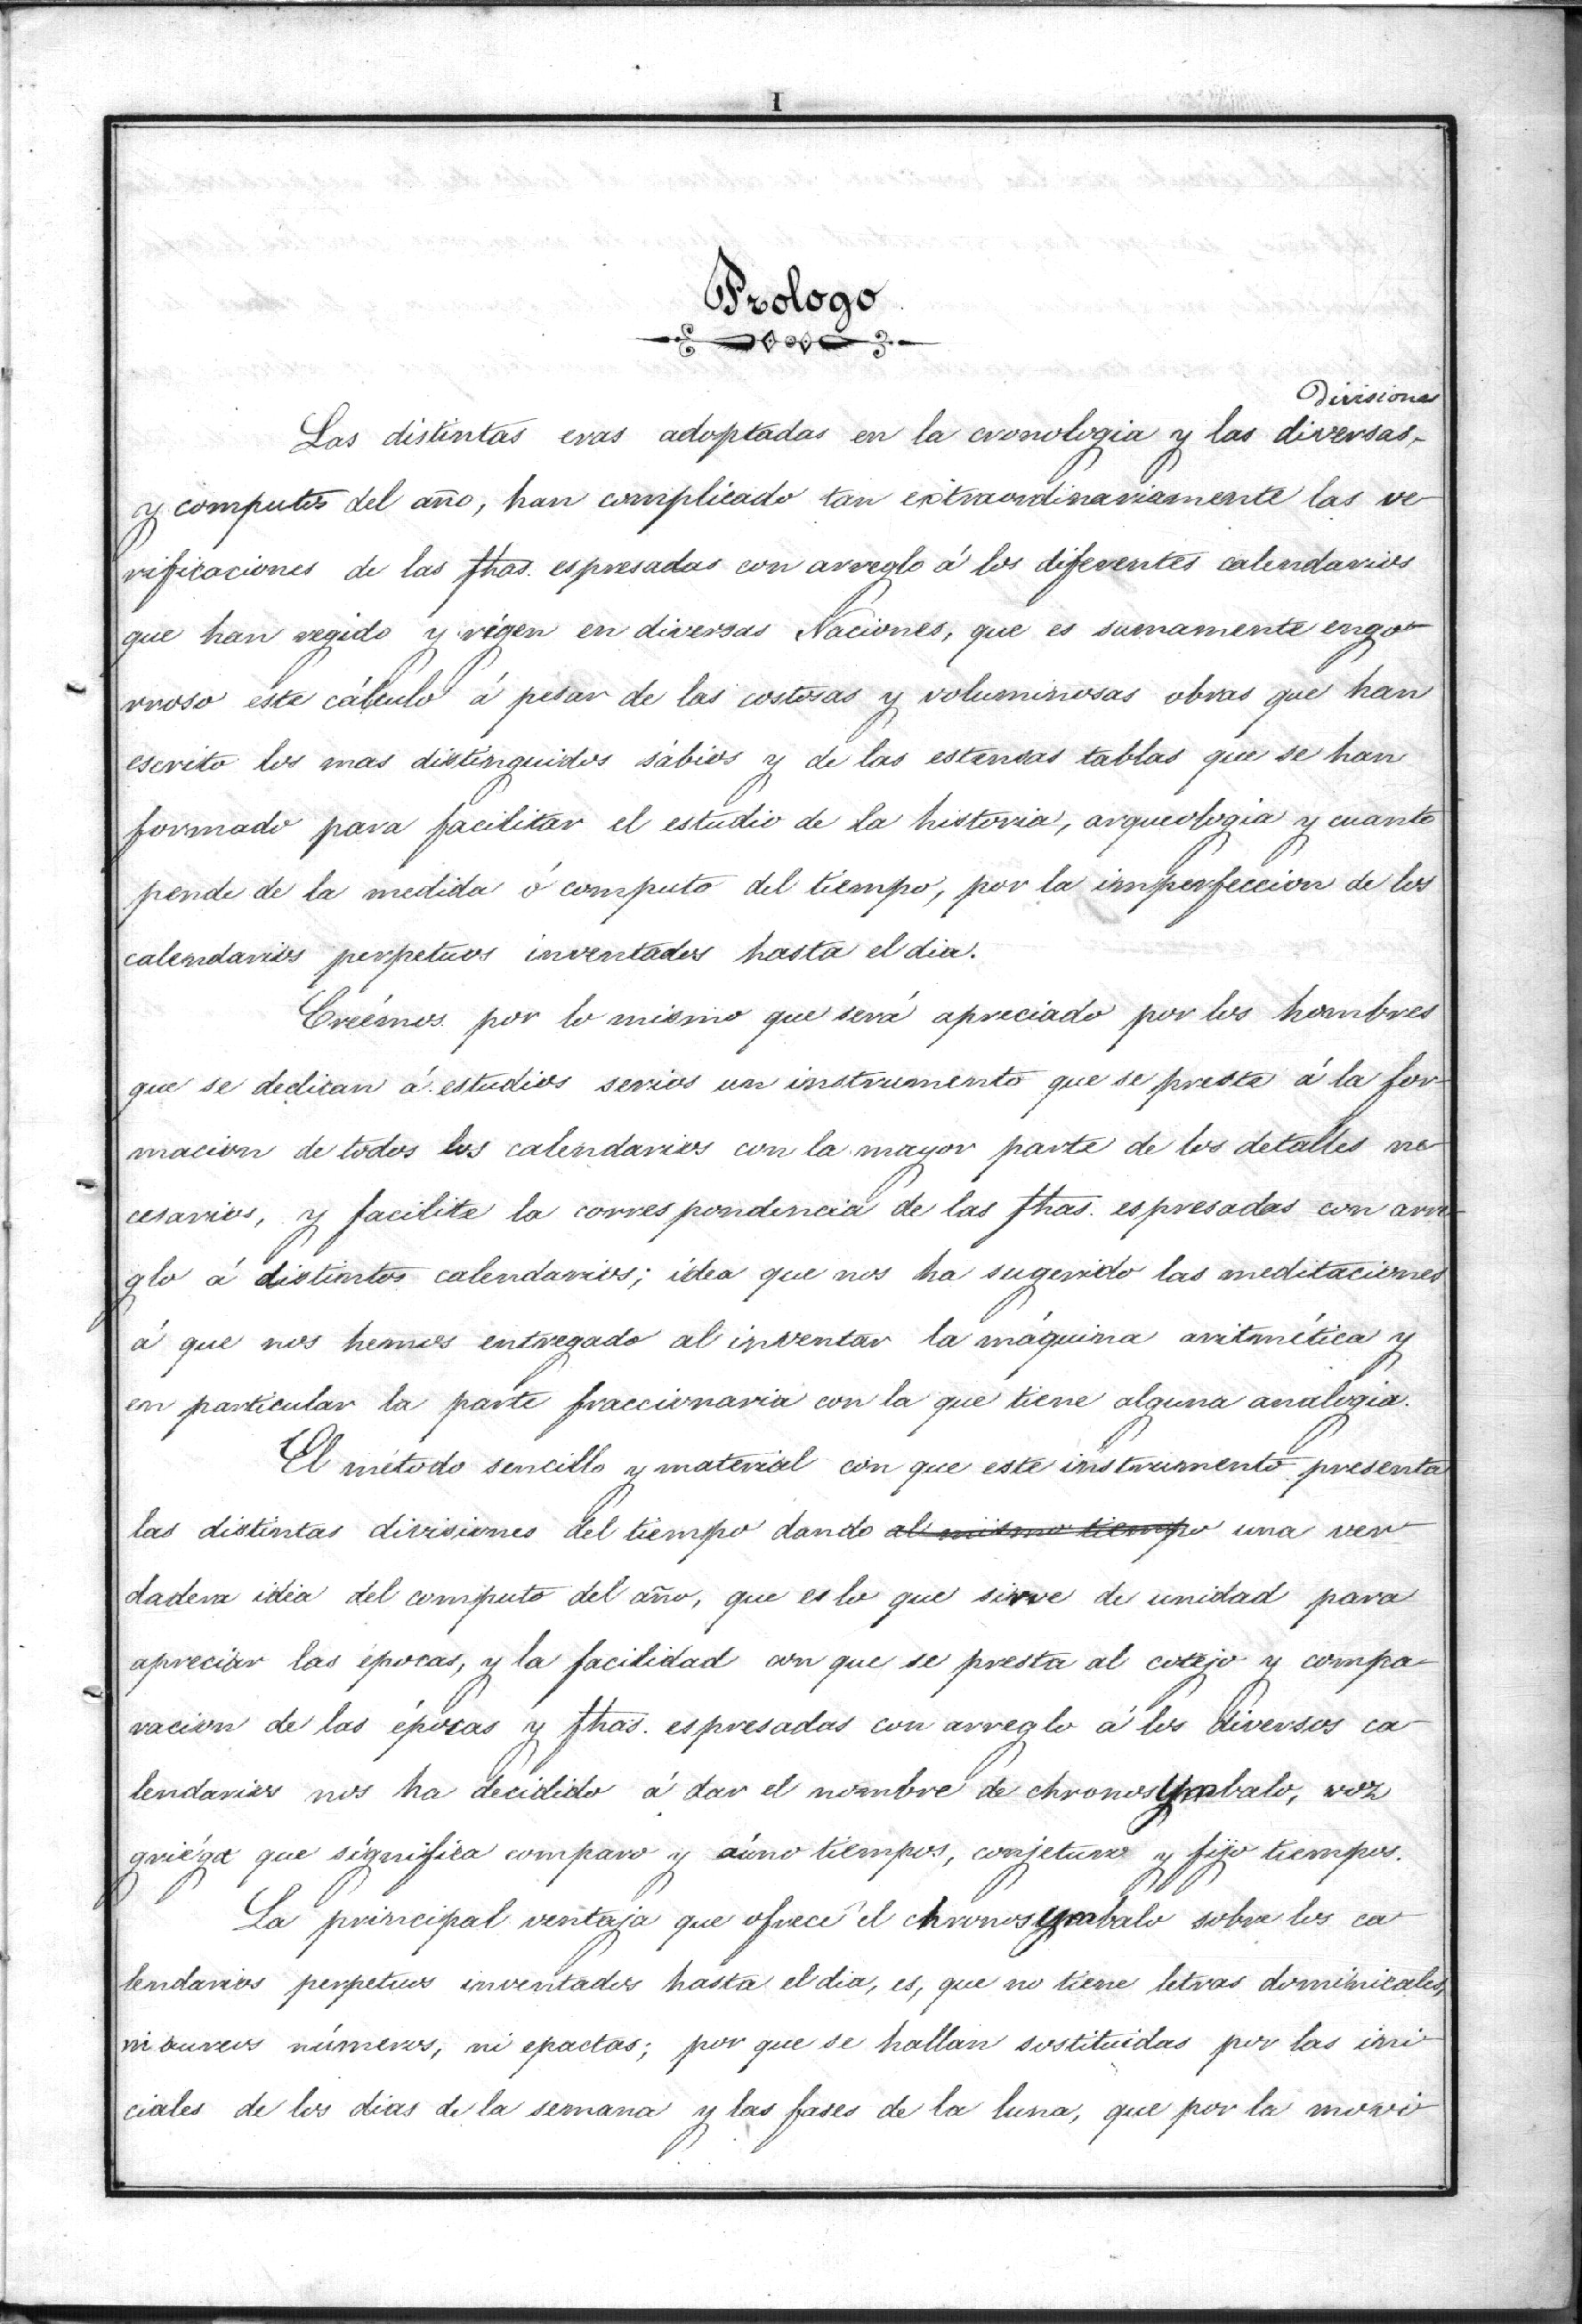 I
Prologo
Divisiones
Las distintas eras adoptadas en la cronologia y las diversas,
y computos del año, han complicado tan extraordinariamente las ve-
rificaciones de las fhas. espresadas con arreglo á los diferentes calendarios
que han regido y rigen en diversas Naciones, que es sumamente engo-
rroso este cálculo á pesar de las costosas y voluminosas obras que han
escrito los mas distinguidos sábios y de las estensas tablas que se han
formado para facilitar el estudio de la historia, arqueologia y cuanto
pende de la medida ó computo del tiempo, por la imperfeccion de los
calendarios perpetuos inventados hasta el dia.
Creémos por lo mismo que será apreciado por los hombres
que se dedican á estudios serios un instrumento que se preste á la for-
macion de todos los calendarios con la mayor parte de los detalles ne-
cesarios, y facilite la correspondencia de las fhas. espresadas con arre-
glo á distintos calendarios; idea que nos ha sugerido las meditaciones
á que nos hemos entregado al inventar la máquina aritmética y
en particular la parte fraccionaria con la que tiene alguna analogia.
El método sencillo y material con que este instrumento presenta
las distintas divisiones del tiempo dando al mismo tiempo una ver-
dadera idéa del computo del año, que es lo que sirve de unidad para
apreciar las épocas, y la facilidad con que se presta al cotejo y compa-
racion de las épocas y fhas. espresadas con arreglo á los diversos ca-
lendarios nos ha decidido á dar el nombre de chronosymbalo, voz
griéga que significa comparo y aúno tiempos, conjeturo y fijo tiempos.
La principal ventaja que ofrece el chronosymbalo sobre los ca-
lendarios perpetuos inventados hasta el dia, es, que no tiene letras dominicales,
ni aureos números, ni epactas; por que se hallan sostituidas por las ini-
ciales de los dias de la semana y las fases de la luna, que por la movi-